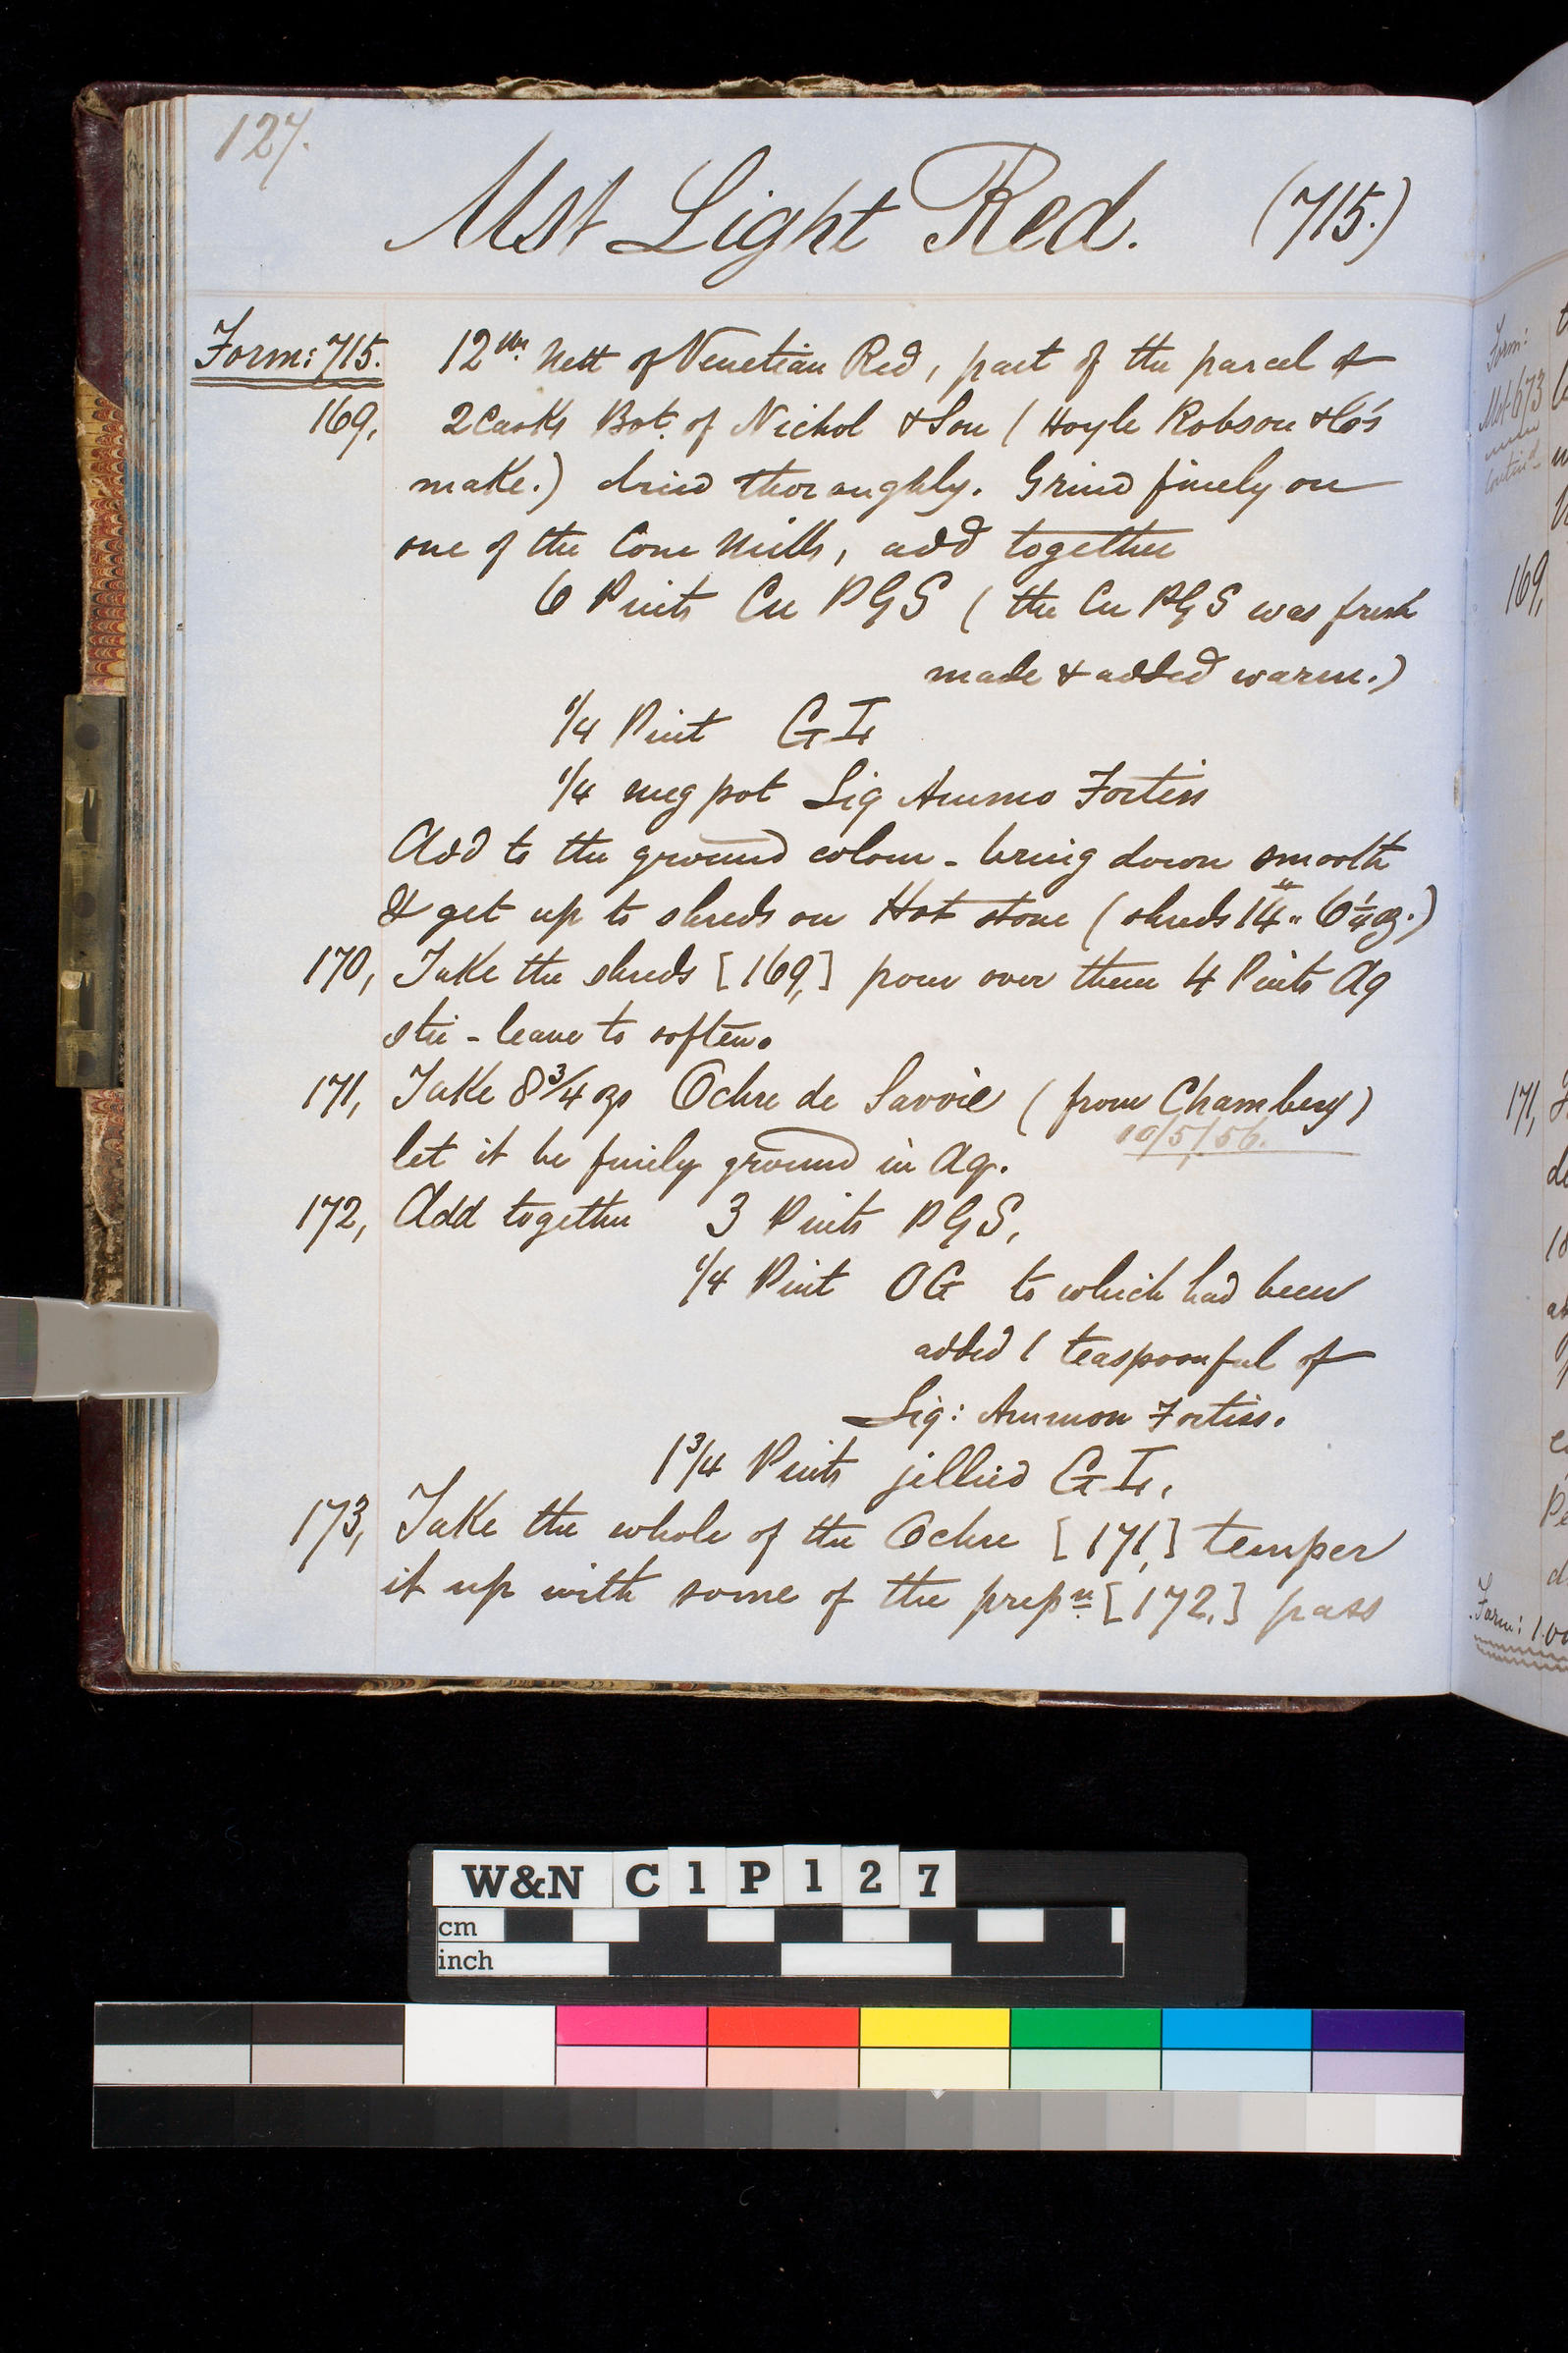 127.
Mst Light Red. (715.)
Form: 715. 12 lbs. Nett of Venetian Red, part of the parcel of
169, 2 Casks Bot. of Nichol & Son (Hoyle Robson & Co's
make.) dried thoroughly. Grind finely on
one of the Cone Mills, add together
6 Pints Cu PGS (the Cu PGS was fresh
made & added warm.)
1/4 Pint GI,
1/4 meg pot Liq Ammo Fortiss
Add to the ground colour - bring down smooth
& get up to shreds on Hot stone (shreds 14 lbs " 6 1/4 oz.)
170, Take the shreds [169,] pour over them 4 Pints Aq
sti - leave to soften.
171, Take 8 3/4 ozs Ochre de Savoie (from Chambery)
10/5/56.
let it be finely ground in Aq.
172, Add together 3 Pints PGS,
1/4 Pint OG to which had been
added 1 teaspoonful of
Liq: Ammon Fortiss.
1 3/4 Pints jellied GI,
173, Take the whole of the Ochre [171,] temper
it up with some of the prepn. [172,] pass
Form:
Mst 673
contind
169,
171,
Form: 1.00
W&N C1P127
cm
inch